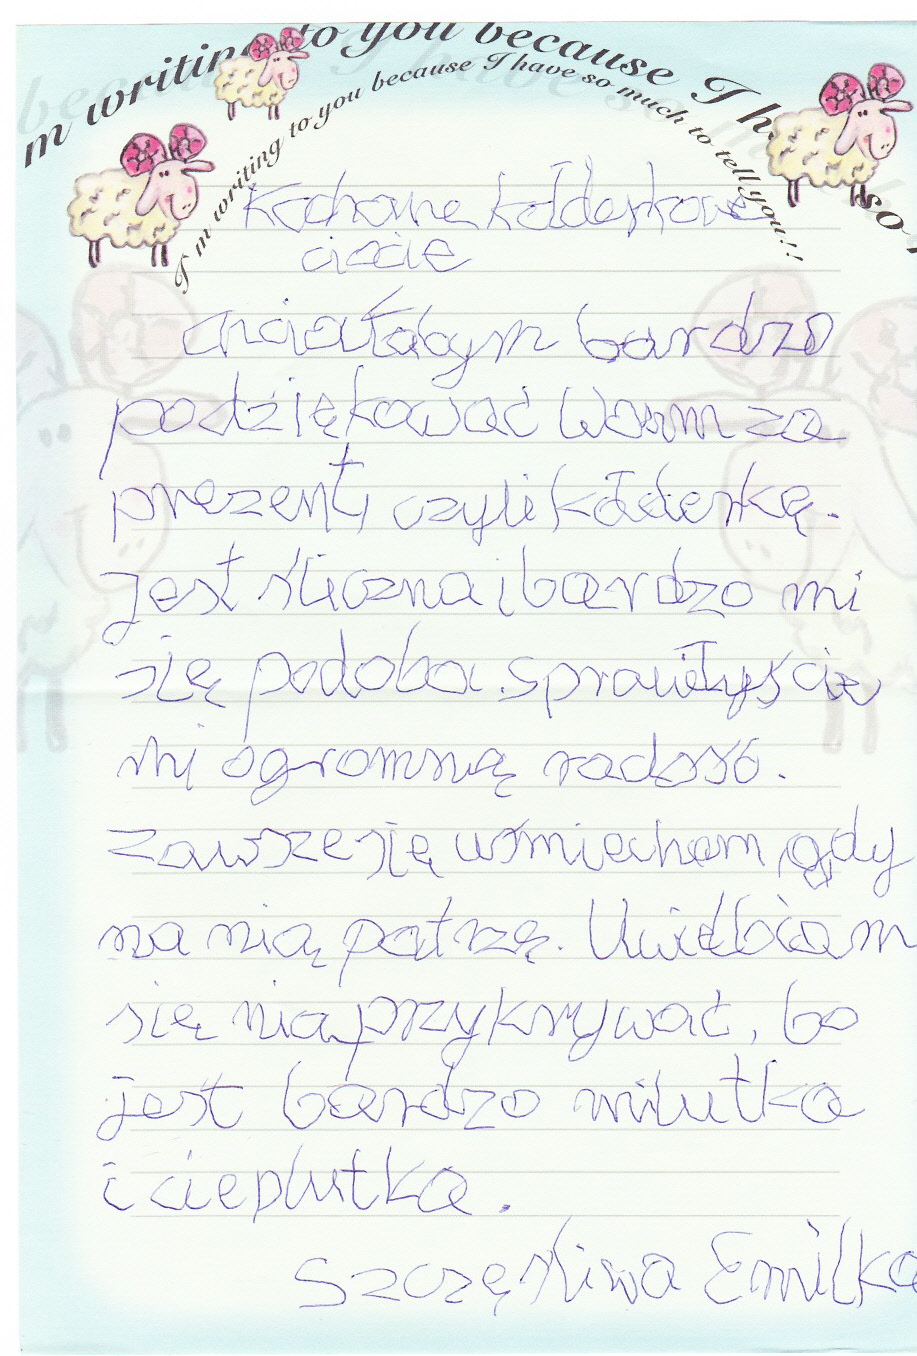 m writing to you because I h
so
I'm writing to you because I have so much to tell you!!
Kochane kołderkowe
ciocie
chciałabym bardzo
podziękować Wam za
prezent, czyli kołderkę.
Jest śliczna i bardzo mi
się podoba. Sprawiłyście
mi ogromną radość.
Zawsze się uśmiecham gdy
na nią patrzę. Uwielbiam
się nią przykrywać, bo
jest bardzo milutka
i cieplutka.
Szczęśliwa Emilka